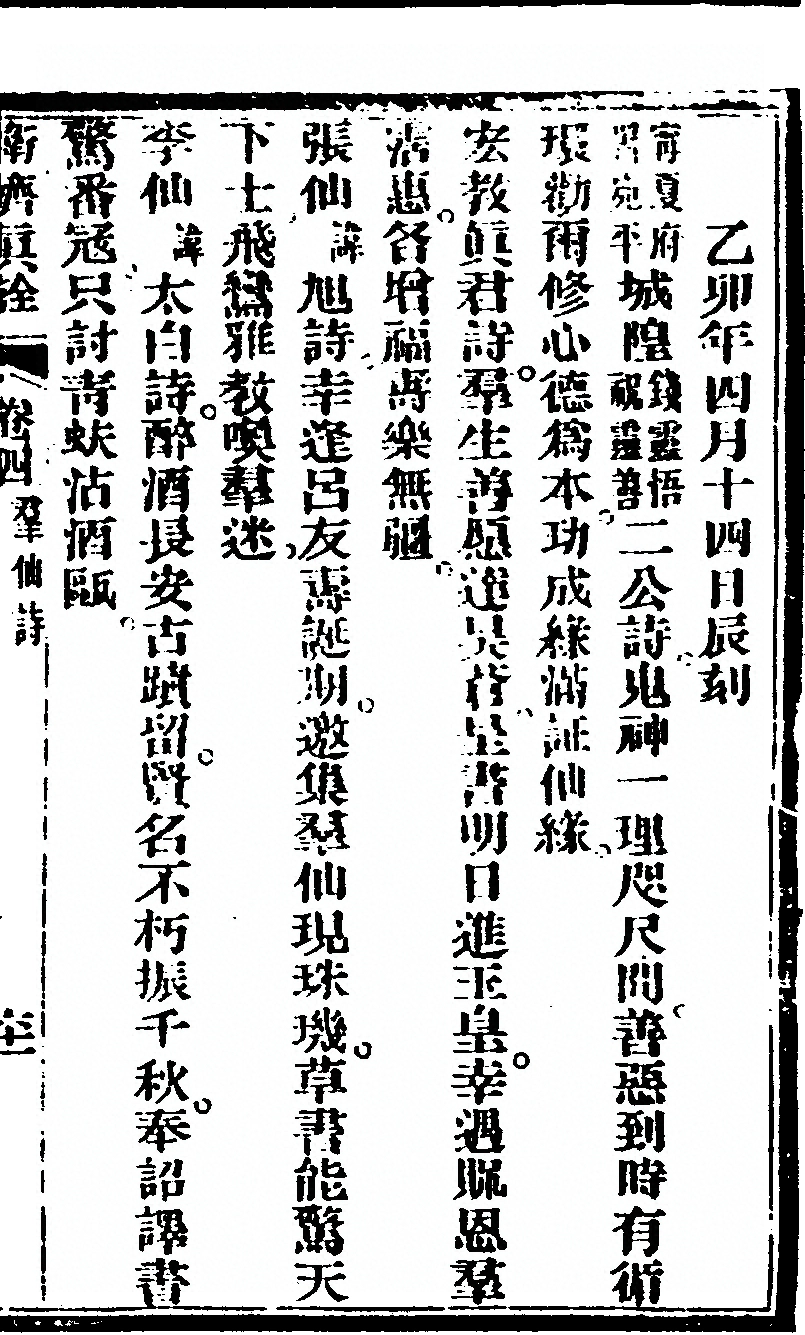 乙卯年四月十四日辰刻
甯夏府宛平城隍錢靈悟祝證善二公詩鬼神一理咫尺間善惡到時有循
環勸爾修心德爲本功成緣滿証仙緣
宏教眞君詩羣生善愿達昊蒼呈書明日進玉皇幸遇賜恩羣
沾惠各增福壽樂無疆
張仙諱旭詩幸逢呂友壽誕期邀集羣仙現珠璣草書能驚天
下士飛鸞雅教喚羣迷
李仙諱太白詩醉酒長安古蹟留賢名不朽振千秋奉詔譯書
驚番冠只討青蚨沽酒甌
眞詮
卷四
羣仙詩